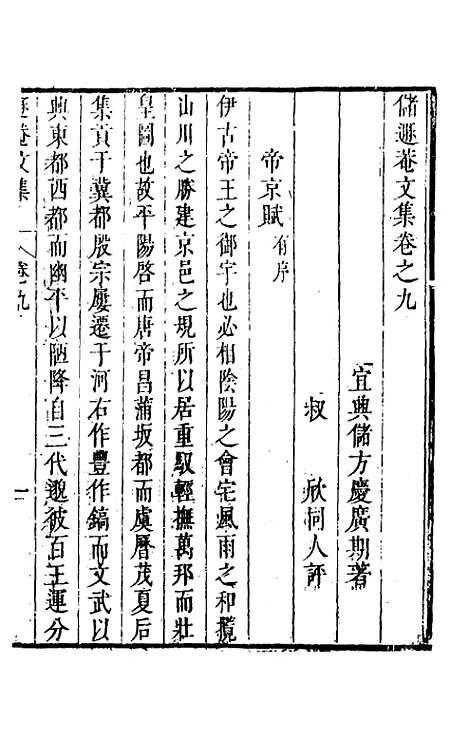 儲遯菴文集卷之九
宜興儲方慶廣期著
叔 欣同人評
帝京賦有序
伊古帝王之御宇也必相陰陽之會宅風雨之和攬
山川之勝建京邑之規所以居重馭輕撫萬邦而壯
皇圖也故平陽啓而唐帝昌蒲坂都而虞曆茂夏后
集貢于冀都殷宗屢遷于河右作豐作鎬而文武以
興東都西都而幽平以陋降自三代邈彼百王運分
遯菴文集 卷九 一